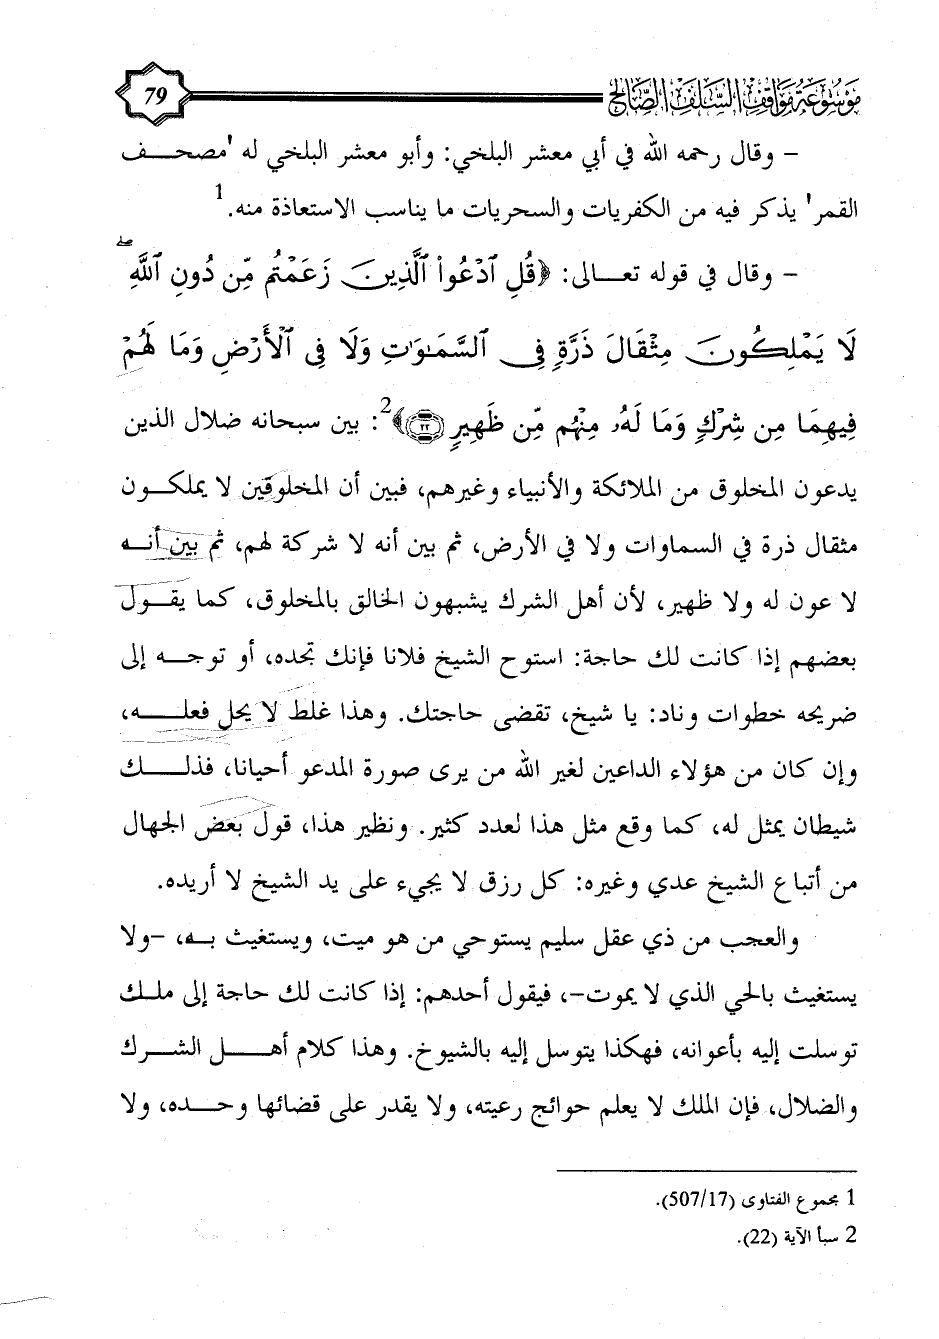 موسوعة مواقف السلف الصالح
79
– وقال رحمه الله في أبي معشر البلخي: وأبو معشر البلخي له 'مصحـــف
القمر' يذكر فيه من الكفريات والسحريات ما يناسب الاستعاذة منه.1
– وقال في قوله تعـــالى: ﴿قُلِ ٱدْعُوا۟ ٱلَّذِينَ زَعَمْتُم مِّن دُونِ ٱللَّهِ ۖ
لَا يَمْلِكُونَ مِثْقَالَ ذَرَّةٍ فِى ٱلسَّمَـٰوَٰتِ وَلَا فِى ٱلْأَرْضِ وَمَا لَهُمْ
فِيهِمَا مِن شِرْكٍ وَمَا لَهُۥ مِنْهُم مِّن ظَهِيرٍ ٢٢﴾2: بين سبحانه ضلال الذين
يدعون المخلوق من الملائكة والأنبياء وغيرهم، فبين أن المخلوقين لا يملكـــون
مثقال ذرة في السماوات ولا في الأرض، ثم بين أنه لا شركة لهم، ثم بين أنـــه
لا عون له ولا ظهير، لأن أهل الشرك يشبهون الخالق بالمخلوق، كما يقـــول
بعضهم إذا كانت لك حاجة: استوح الشيخ فلانا فإنك تجده، أو توجـــه إلى
ضريحه خطوات وناد: يا شيخ، تقضى حاجتك. وهذا غلط لا يحل فعلـــه،
وإن كان من هؤلاء الداعين لغير الله من يرى صورة المدعو أحيانا، فذلـــك
شيطان يمثل له، كما وقع مثل هذا لعدد كثير. ونظير هذا، قول بعض الجهال
من أتباع الشيخ عدي وغيره: كل رزق لا يجيء على يد الشيخ لا أريده.
والعجب من ذي عقل سليم يستوحي من هو ميت، ويستغيث بـــه، –ولا
يستغيث بالحي الذي لا يموت–، فيقول أحدهم: إذا كانت لك حاجة إلى ملـك
توسلت إليه بأعوانه، فهكذا يتوسل إليه بالشيوخ. وهذا كلام أهـــل الشـــرك
والضلال، فإن الملك لا يعلم حوائج رعيته، ولا يقدر على قضائها وحـــده، ولا
1 مجموع الفتاوى (507/17).
2 سبأ الآية (22).